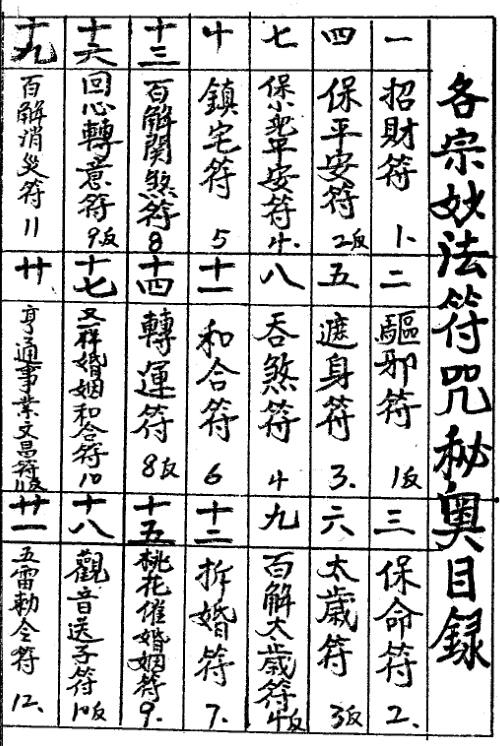 各宗妙法符咒秘奧目録
一
招財符 1.
二
驅邪符 1反
三
保命符 2.
四
保平安符 2反
五
遮身符 3.
六
太歲符 3反
七
保小兒平安符 4.
八
吞煞符 4
九
百解太歲符 4反
十
鎮宅符 5
十一
和合符 6
十二
拆婚符 7.
十三
百解関煞符 8
十四
轉運符 8反
十五
桃花催婚姻符 9.
十六
回心轉意符 9反
十七
又一樣婚姻和合符 10
十八
觀音送子符 10反
十九
百解消災符 11
廿
亨通事業文昌符 11反
廿一
五雷勅令符 12.